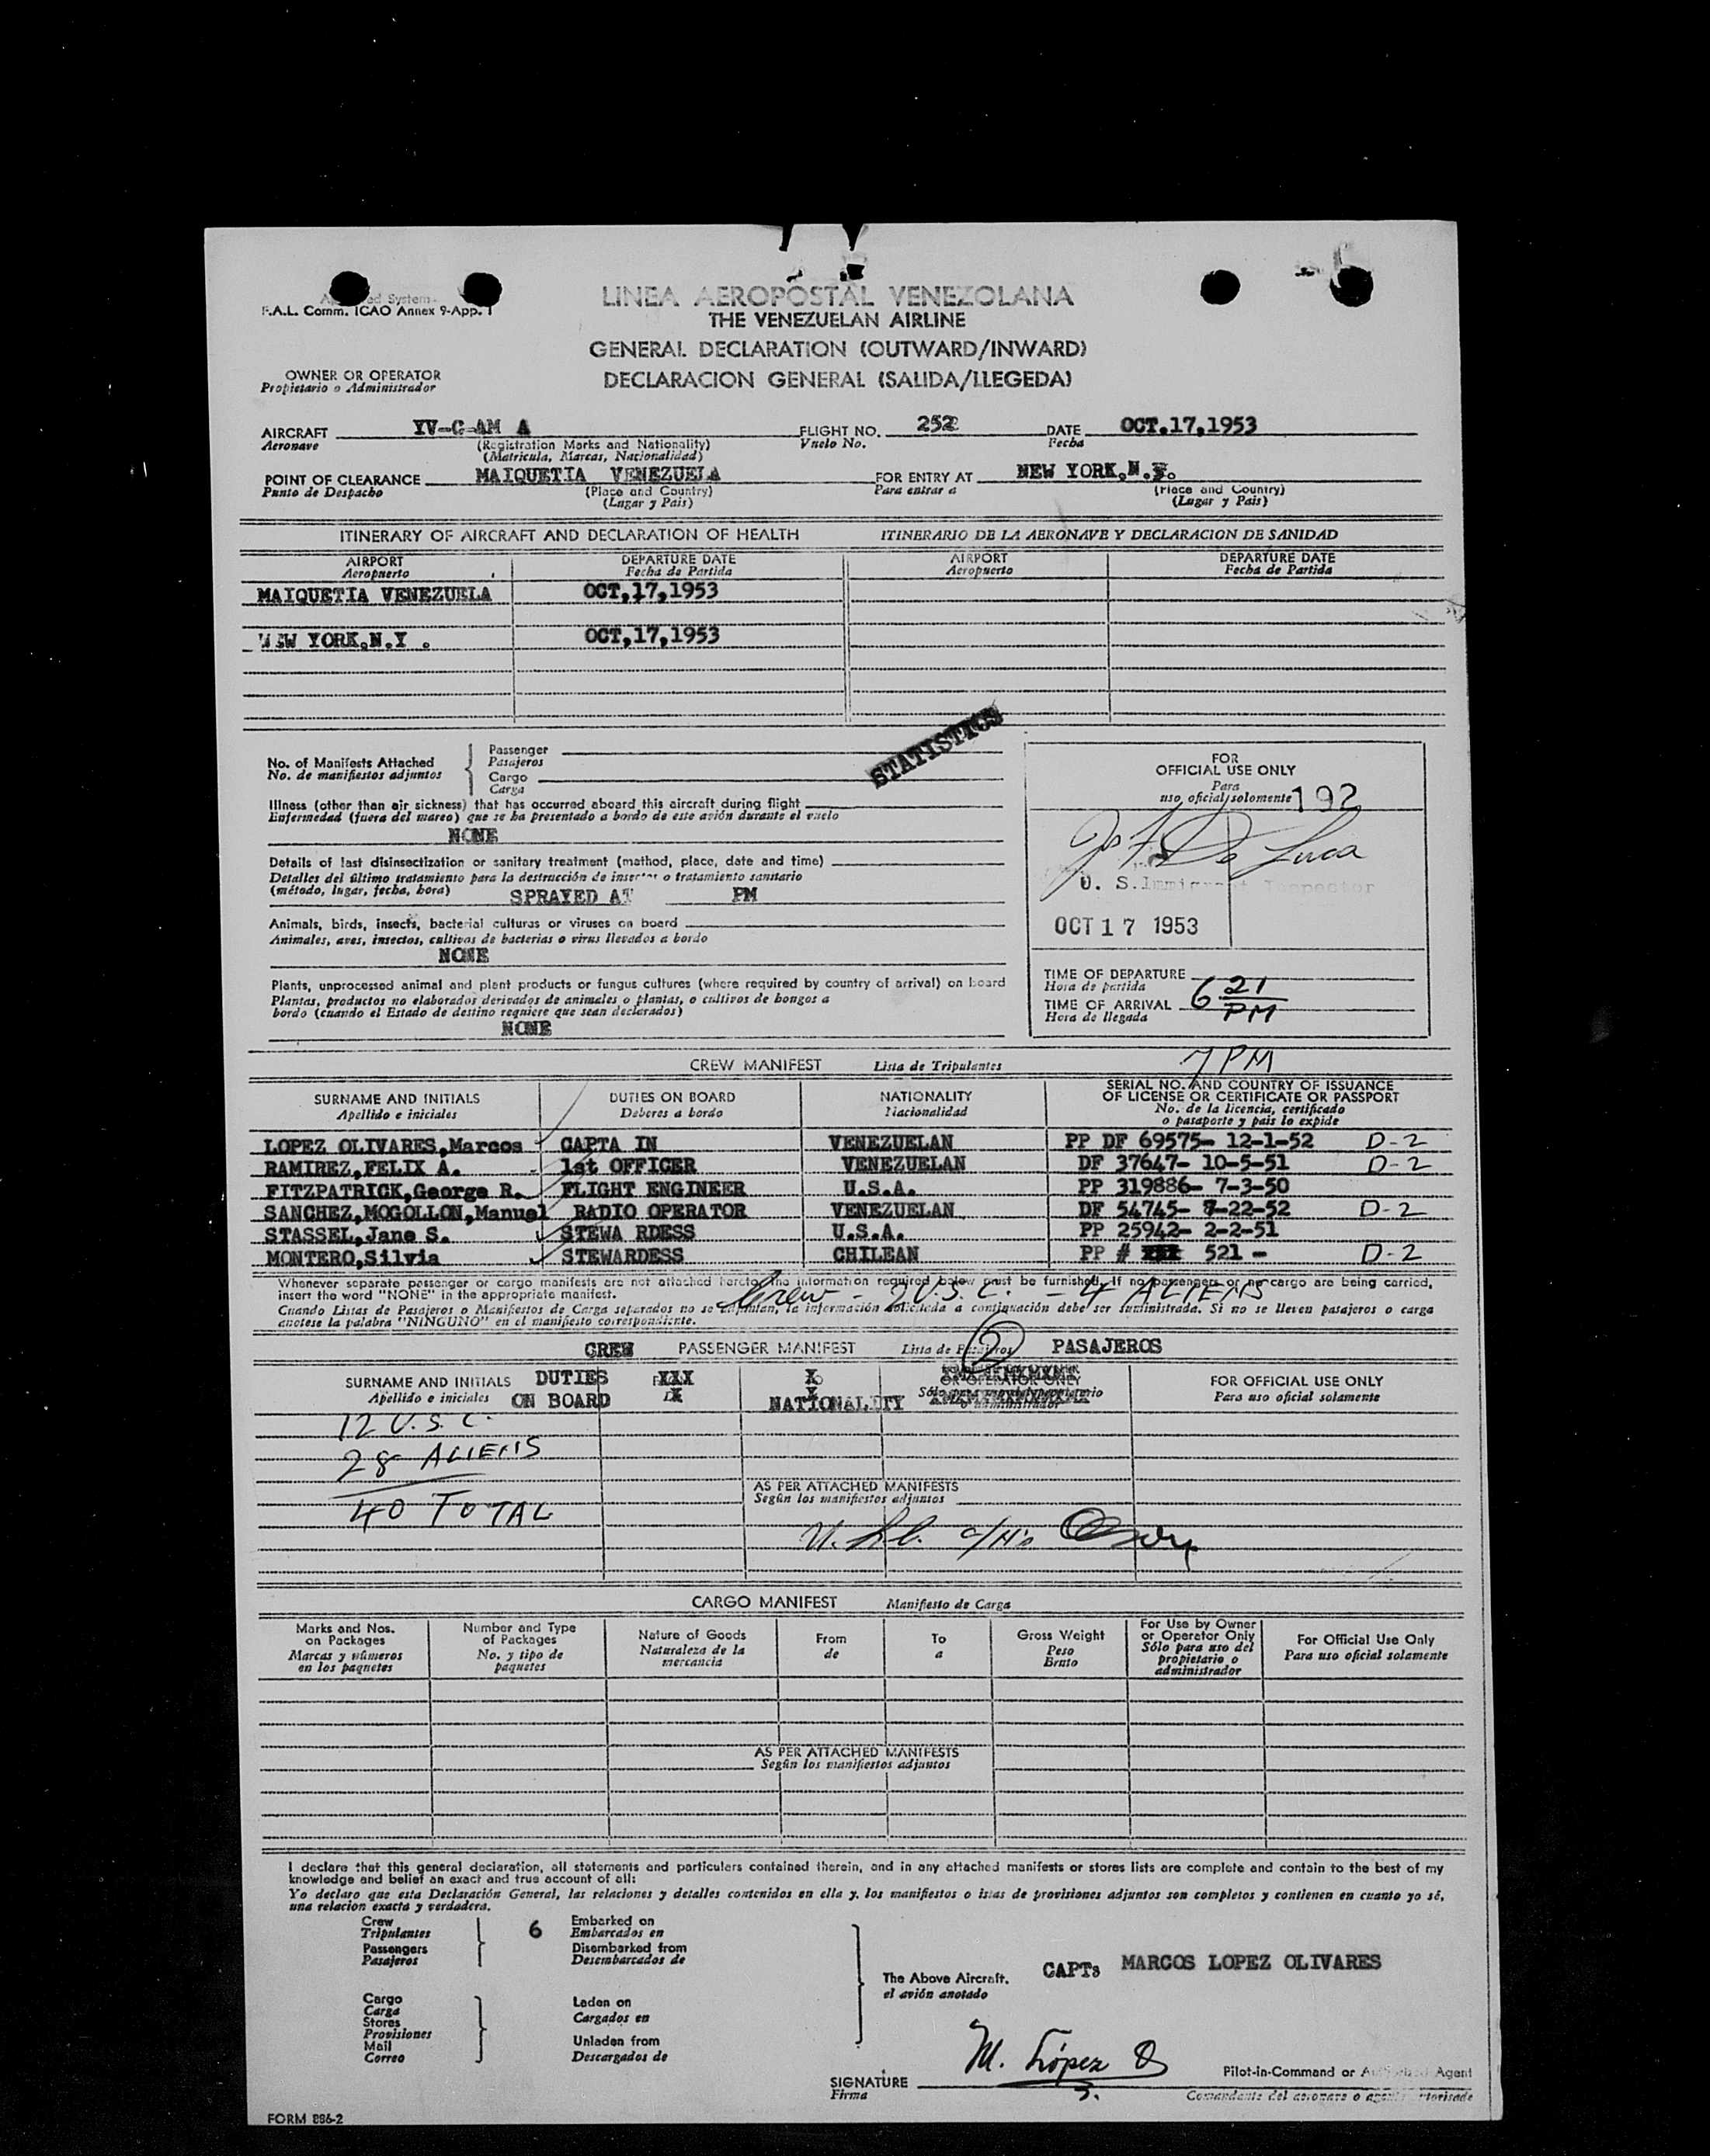 F.A.L. Comm. ICAO Annex 9-App. 1
LINEA AEROPOSTAL VENEZOLANA
THE VENEZUELAN AIRLINE
GENERAL DECLARATION (OUTWARD/INWARD)
DECLARACION GENERAL (SALIDA/LLEGEDA)
OWNER OR OPERATOR
Propietario o Administrador
AIRCRAFT YV-C-AM A FLIGHT NO. 252 DATE OCT.17,1953
Aeronave (Registration Marks and Nationality) Vuelo No. Fecha
(Matricula, Marcas, Nacionalidad)
POINT OF CLEARANCE MAIQUETIA VENEZUELA FOR ENTRY AT NEW YORK,N.Y.
Punto de Despacho (Place and Country) Para entrar a (Place and Country)
(Lugar y Pais) (Lugar y Pais)
ITINERARY OF AIRCRAFT AND DECLARATION OF HEALTH ITINERARIO DE LA AERONAVE Y DECLARACION DE SANIDAD
AIRPORT DEPARTURE DATE AIRPORT DEPARTURE DATE
Aeropuerto Fecha de Partida Aeropuerto Fecha de Partida
MAIQUETIA VENEZUELA OCT,17,1953
NEW YORK,N.Y . OCT,17,1953
STATISTICS
No. of Manifests Attached
No. de manifiestos adjuntos
Passenger
Pasajeros
Cargo
Carga
Illness (other than air sickness) that has occurred aboard this aircraft during flight
Enfermedad (fuera del mareo) que se ha presentado a bordo de este avión durante el vuelo
NONE
Details of last disinsectization or sanitary treatment (method, place, date and time)
Detalles del último tratamiento para la destrucción de insectos o tratamiento sanitario
(método, lugar, fecha, hora) SPRAYED AT PM
Animals, birds, insects, bacterial cultures or viruses on board
Animales, aves, insectos, cultivos de bacterias o virus llevados a bordo
NONE
Plants, unprocessed animal and plant products or fungus cultures (where required by country of arrival) on board
Plantas, productos no elaborados derivados de animales o plantas, o cultivos de hongos a
bordo (cuando el Estado de destino requiere que sean declarados)
NONE
FOR
OFFICIAL USE ONLY
Para
uso oficial solomente 192
De Luca
U. S. Immigrant Inspector
OCT 17 1953
TIME OF DEPARTURE
Hora de partida
TIME OF ARRIVAL 6 21 PM
Hora de llegada
7 PM
CREW MANIFEST Lista de Tripulantes
SURNAME AND INITIALS DUTIES ON BOARD NATIONALITY SERIAL NO. AND COUNTRY OF ISSUANCE
Apellido e iniciales Deberes a bordo Nacionalidad OF LICENSE OR CERTIFICATE OR PASSPORT
No. de la licencia, certificado
o pasaporte y pais lo expide
LOPEZ OLIVARES,Marcos CAPTA IN VENEZUELAN PP DF 69575- 12-1-52 D-2
RAMIREZ,FELIX A. 1st OFFICER VENEZUELAN DF 37647- 10-5-51 D-2
FITZPATRICK,George R. FLIGHT ENGINEER U.S.A. PP 319886- 7-3-50
SANCHEZ,MOGOLLON,Manuel RADIO OPERATOR VENEZUELAN DF 54745- 8-22-52 D-2
STASSEL,Jane S. STEWA RDESS U.S.A. PP 25942- 2-2-51
MONTERO,Silvia STEWARDESS CHILEAN PP # 521 - D-2
Whenever separate passenger or cargo manifests are not attached hereto, the information required below must be furnished. If no passengers or no cargo are being carried,
insert the word "NONE" in the appropriate manifest.
Crew - 2 U.S.C. - 4 ALIENS
Cuando Listas de Pasajeros o Manifiestos de Carga separados no se adjuntan, la información solicitada a continuación debe ser suministrada. Si no se lleven pasajeros o carga
anotese la palabra "NINGUNO" en el manifiesto correspondiente.
2
CREW PASSENGER MANIFEST Lista de Pasajeros PASAJEROS
SURNAME AND INITIALS DUTIES XXX X FOR OFFICIAL USE ONLY
Apellido e iniciales ON BOARD NATIONALITY Para uso oficial solamente
12 U.S.C.
28 ALIENS
40 TOTAL
AS PER ATTACHED MANIFESTS
Según los manifiestos adjuntos
CARGO MANIFEST Manifiesto de Carga
Marks and Nos. on Packages Marcas y números en los paquetes
Number and Type of Packages No. y tipo de paquetes
Nature of Goods Naturaleza de la mercancia
From de
To a
Gross Weight Peso Bruto
For Use by Owner or Operator Only Sólo para uso del propietario o administrador
For Official Use Only Para uso oficial solamente
AS PER ATTACHED MANIFESTS
Según los manifiestos adjuntos
I declare that this general declaration, all statements and particulars contained therein, and in any attached manifests or stores lists are complete and contain to the best of my
knowledge and belief an exact and true account of all:
Yo declaro que esta Declaración General, las relaciones y detalles contenidos en ella y, los manifiestos o istas de provisiones adjuntos son completos y contienen en cuanto yo sé,
una relacion exacta y verdadera.
Crew 6 Embarked on
Tripulantes Embarcados en
Passengers Disembarked from
Pasajeros Desembarcados de
The Above Aircraft. CAPT: MARCOS LOPEZ OLIVARES
el avión anotado
Cargo Laden on
Carga Cargados en
Stores
Provisiones
Mail Unladen from
Correo Descargados de
M. López O
SIGNATURE Pilot-in-Command or Authorized Agent
Firma Comandante del aeronave o agente autorisade
FORM 886-2